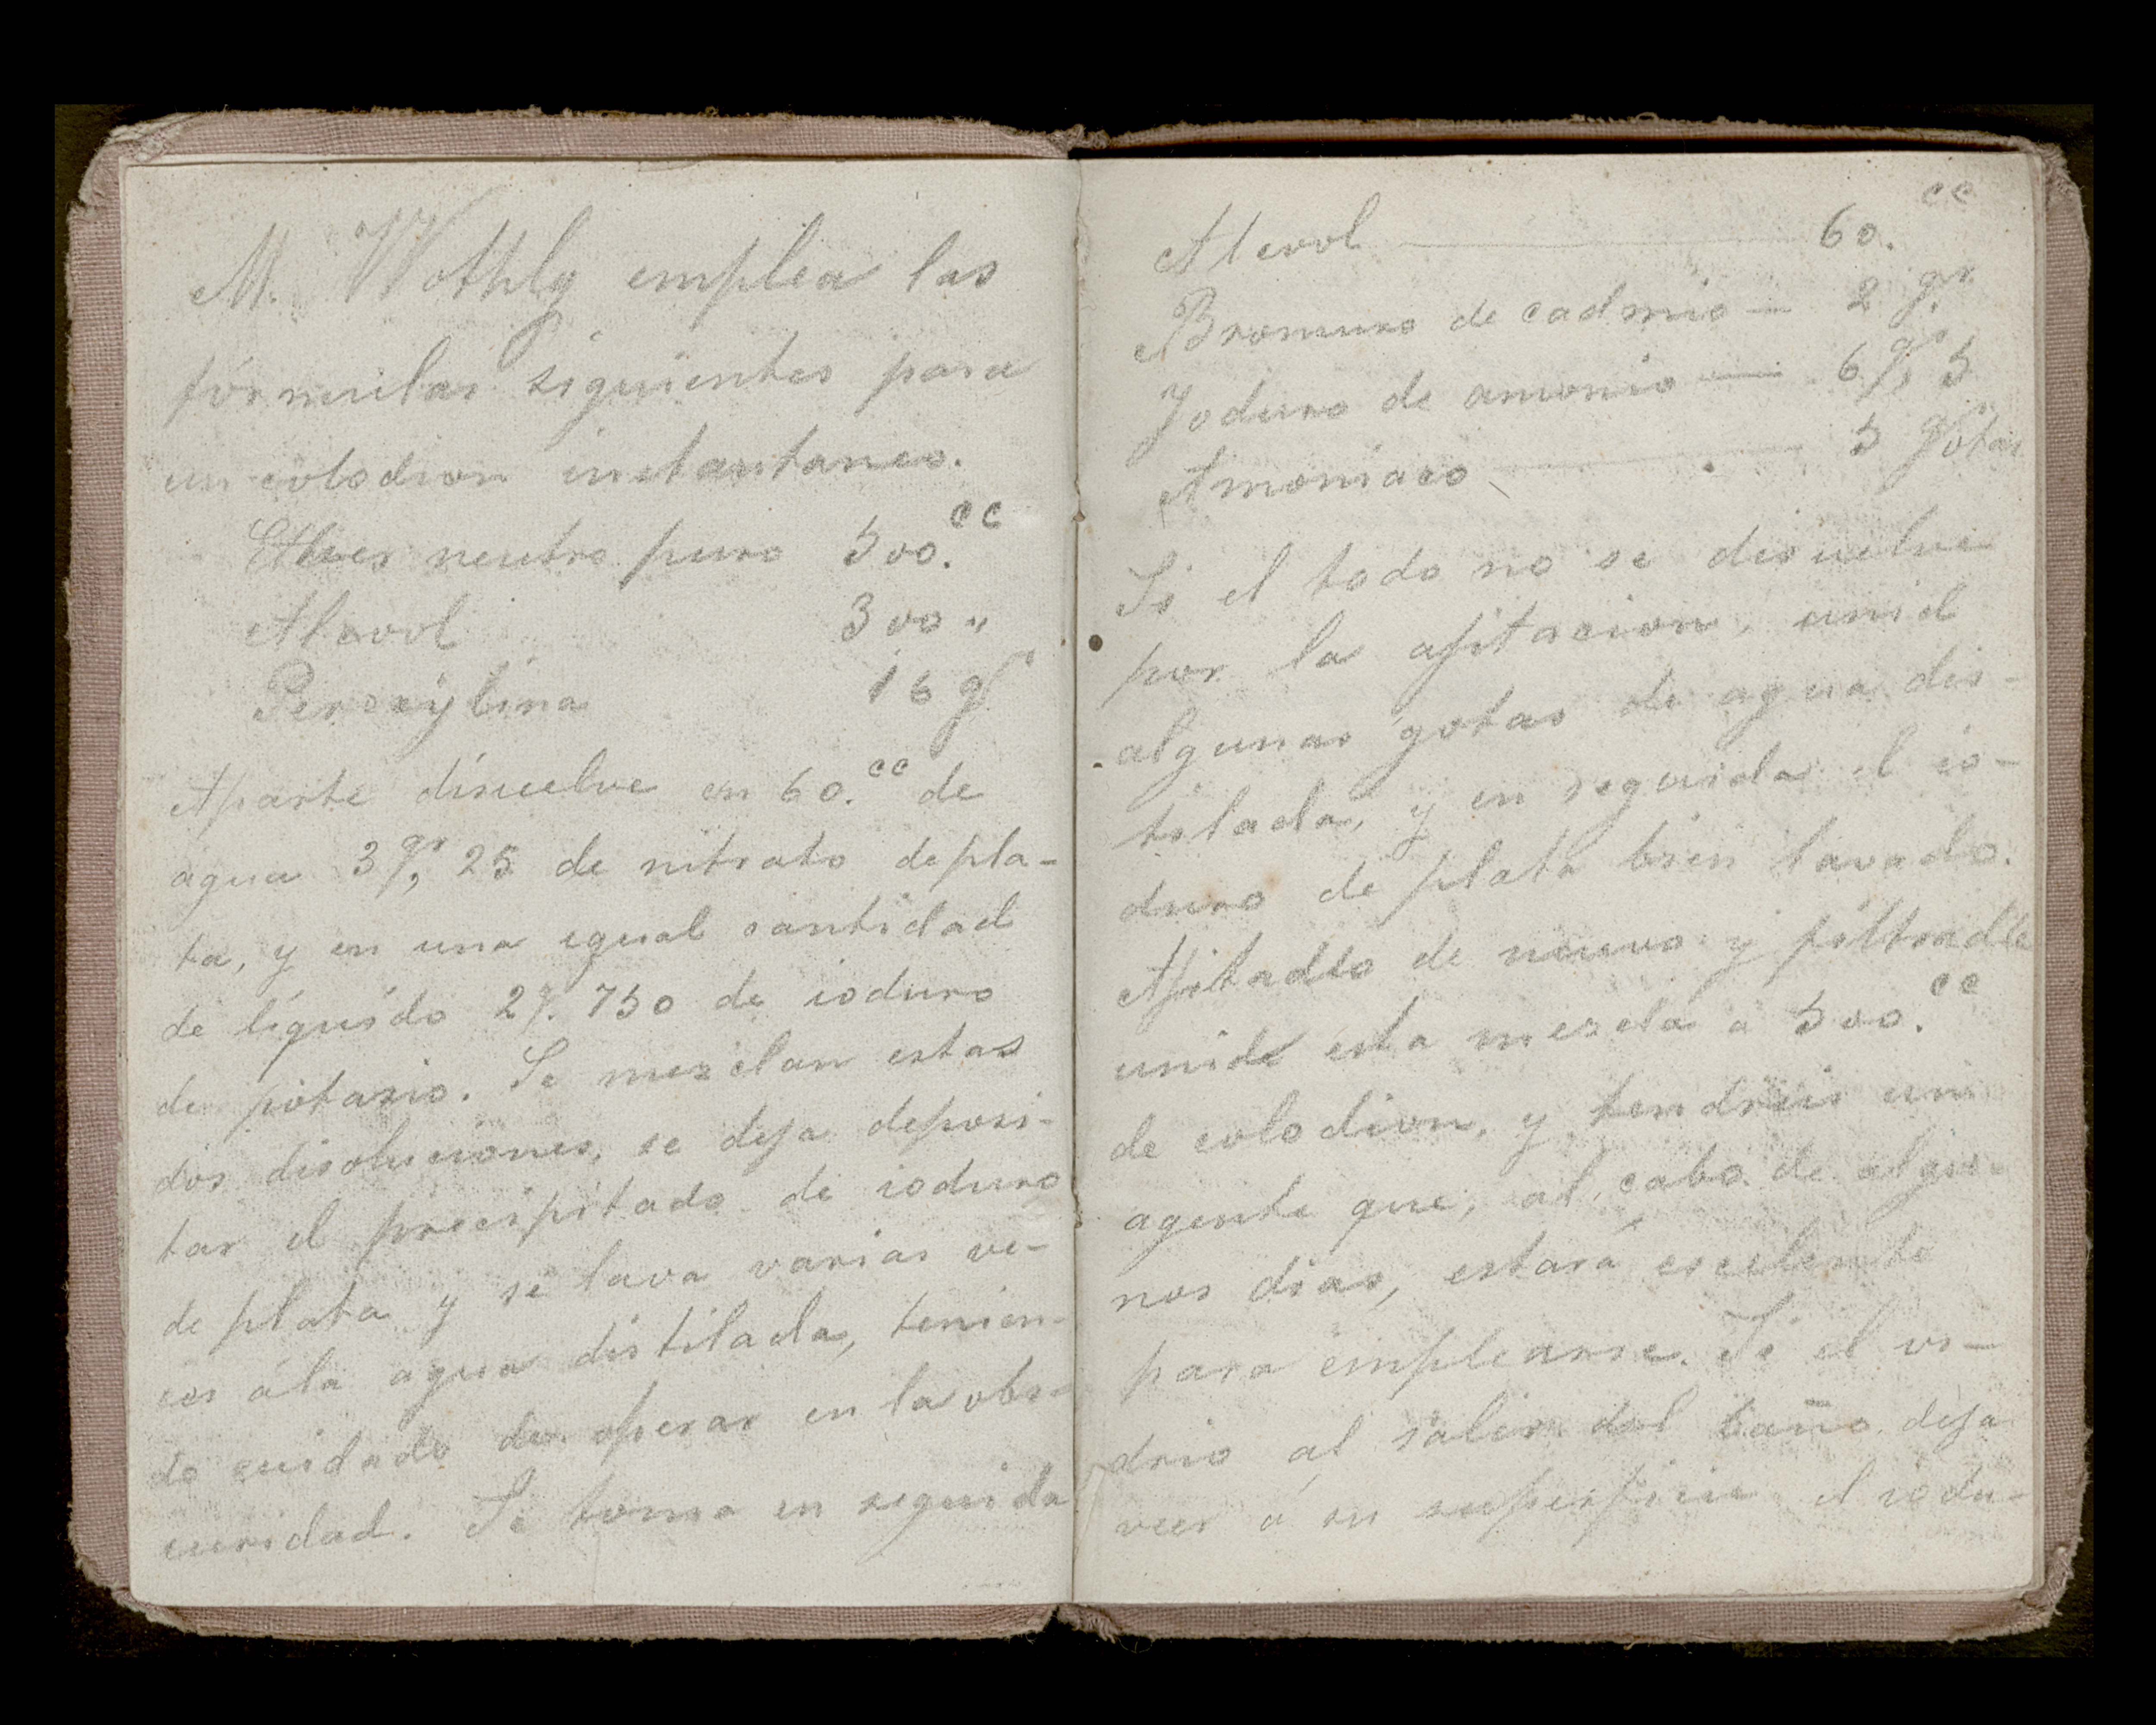 M. Wothly emplea las
fórmulas siguientes para
un colodion instantaneo.
Ether neutro puro 500.cc
Alcool 300 "
Peroxylina 16 gr
Aparte disuelve en 60.cc de
agua 3gr, 25 de nitrato de pla-
ta, y en una egual cantidad
de líquido 2g. 750 de ioduro
de potasio. Se mezclan estas
dos disoluciones, se deja deposi-
tar el precipitado de ioduro
de plata y se lava varias ve-
ces á la agua distilada, tenien-
do cuidado de operar en la obs-
curidad. Se toma en seguida
Alcool — 60.cc
Bromuro de cadmio — 2 gr.
Joduro de amonio — 6gr, 5
Amoniaco — 5 gotas
Si el todo no se disuelve
por la ajitacion, unid
algunas gotas de agua dis-
tilada, y en seguida el io-
duro de plata bien lavado.
Ajitadlo de nuevo y filtradle
unid esta mezcla a 500.cc
de colodion, y tendreis un
agente que, al cabo de algu-
nos dias, estará escelente
para emplearse. Si el vi-
drio al salir del baño deja
veer á su superficie el iodu-